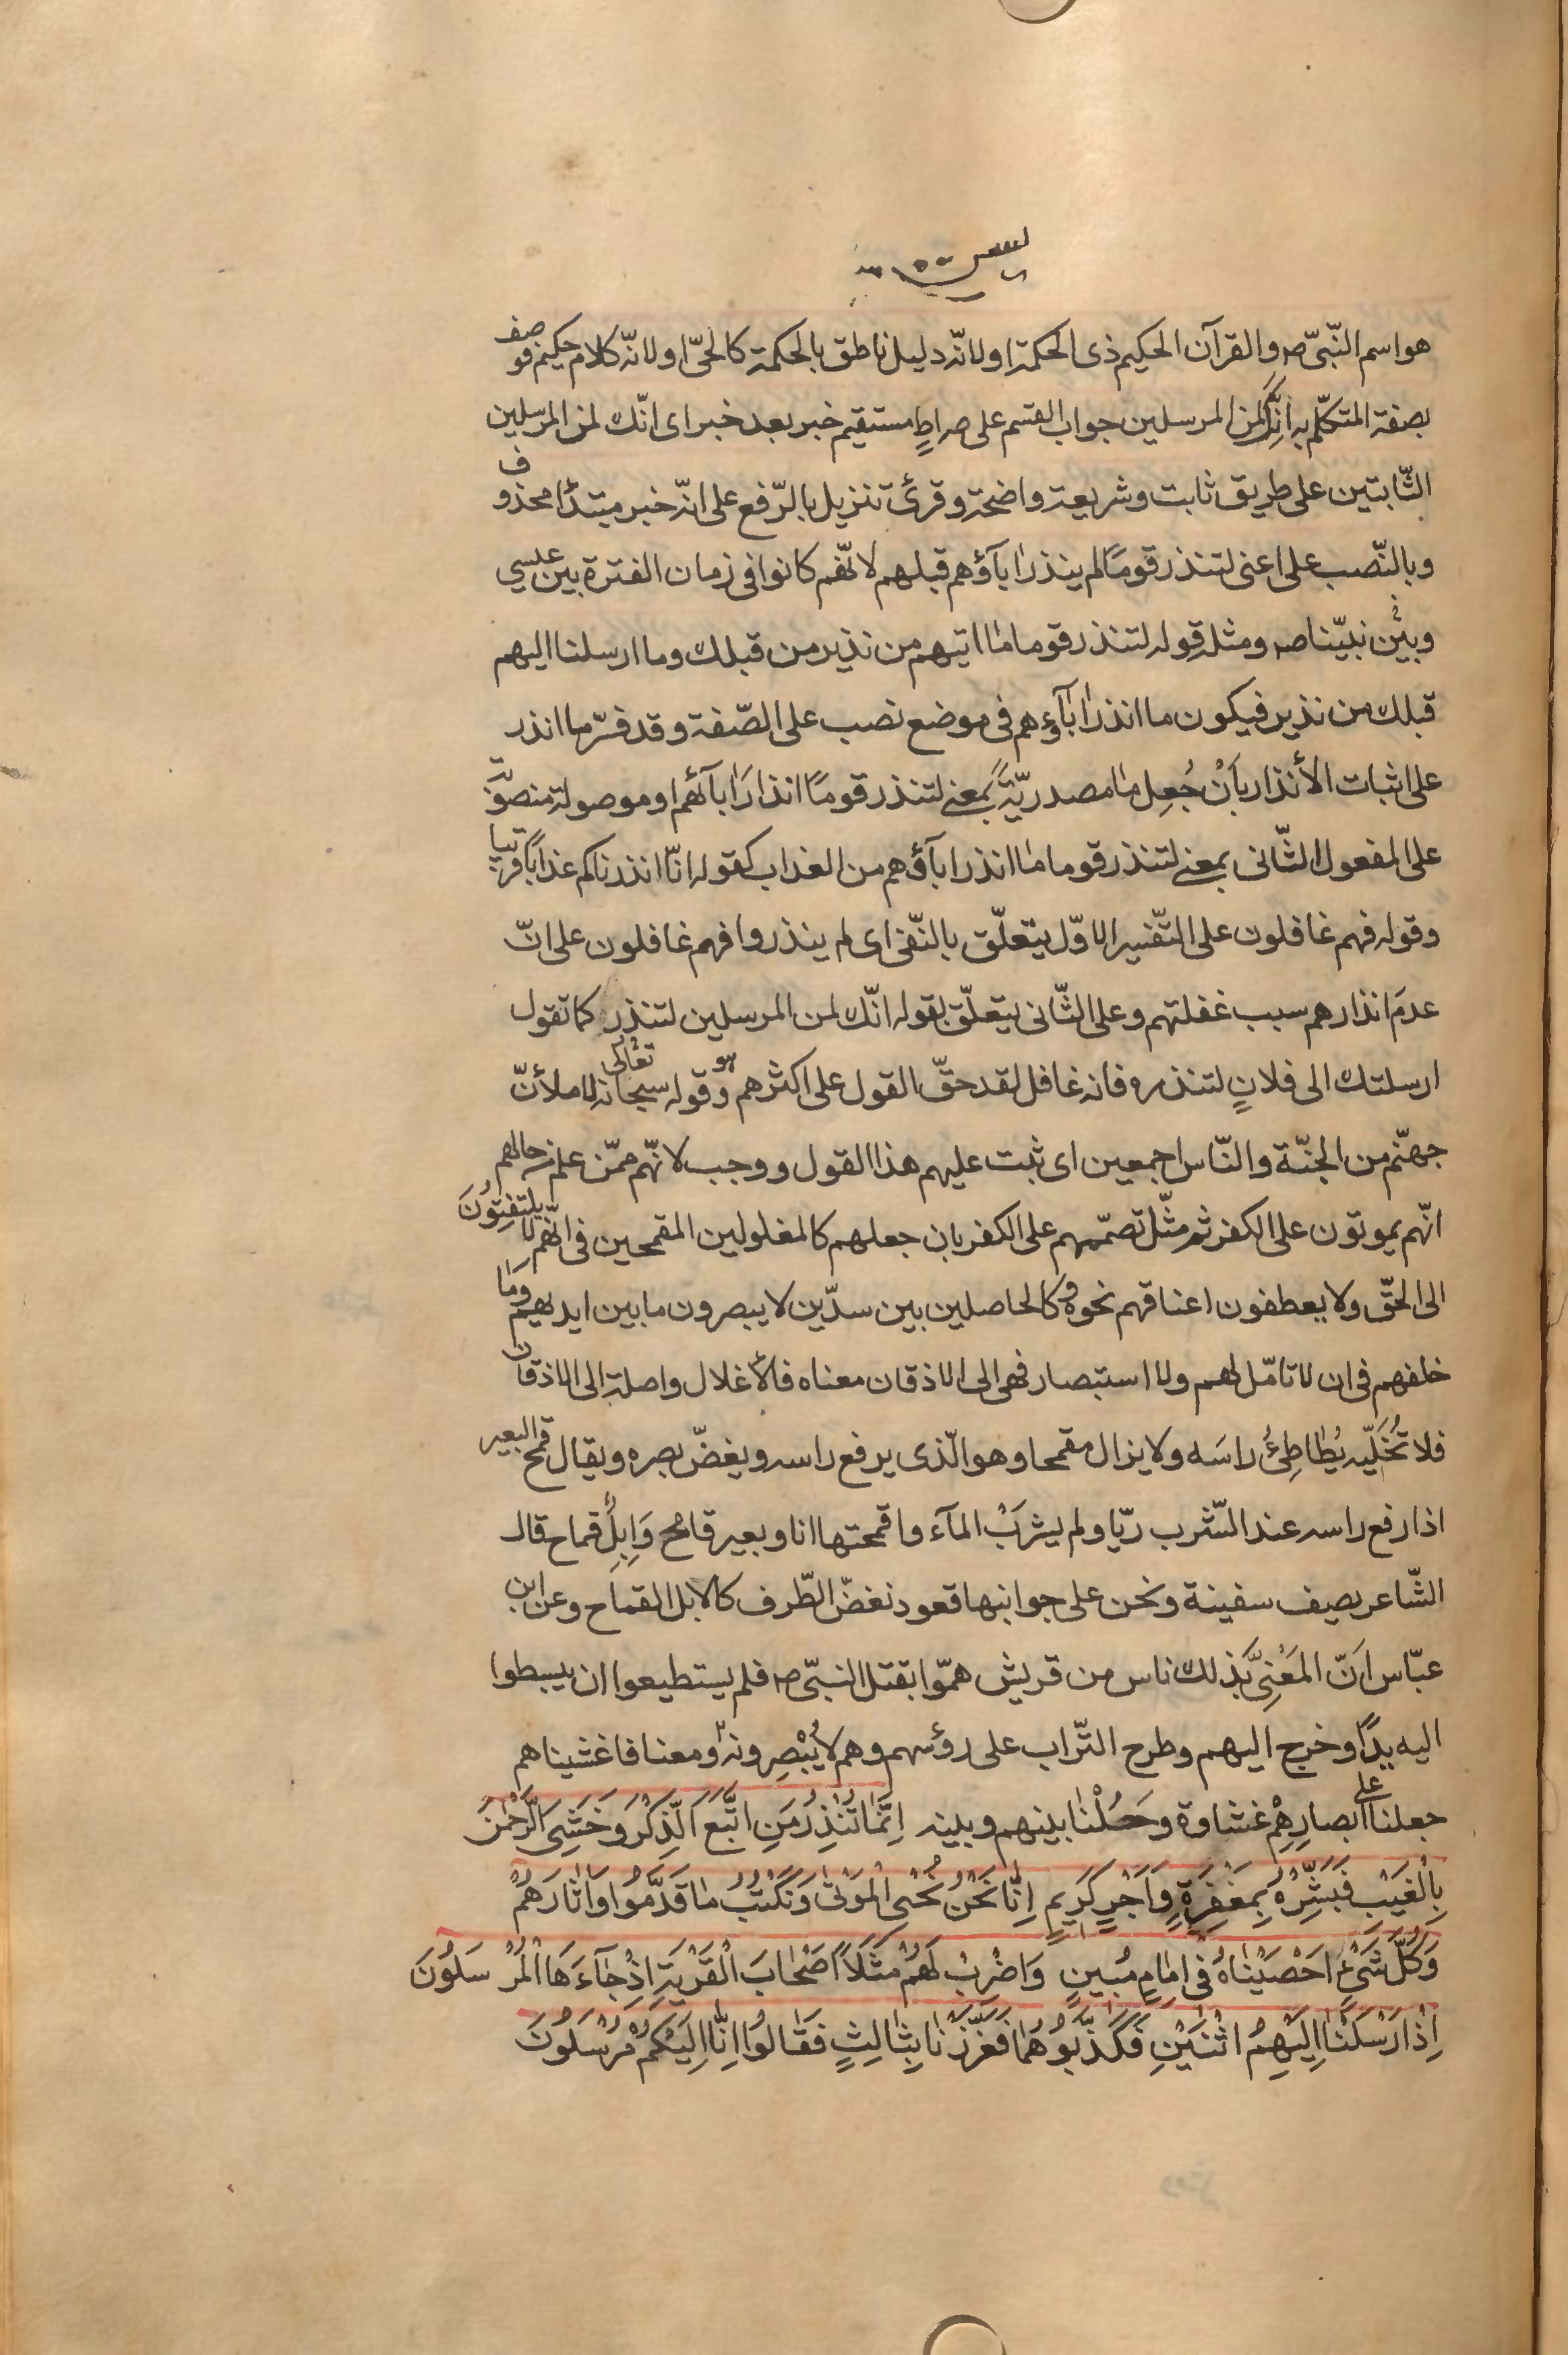 يس
هو اسم النّبىّ ص والقرآن الحكيم ذى الحكمة او لانّه دليل ناطق بالحكمة كالحىّ او لانّه كلام حكيم فوصف
بصفة المتكلّم به انّك لمن المرسلين جواب القسم على صراطٍ مستقيم خبر بعد خبر اى انّك لمن المرسلين
الثّابتين على طريق ثابت وشريعة واضحة وقرئ تنزيل بالرّفع على انّه خبر مبتدأ محذوف
وبالنّصب على اعنى لتنذر قومًا لم ينذر اباۤؤهم قبلهم لانّهم كانوا فى زمان الفترة بين عيسى
وبين نبيّنا ص ومثله قوله لتنذر قوما ما اتيهم من نذير من قبلك وما ارسلنا اليهم
قبلك من نذير فيكون ما انذر اباۤؤهم فى موضع نصب على الصّفة وقد فسّر ما انذر
على اثبات الأنذار بأَنْ جُعِل ما مصدريّةً بمعنى لتنذر قومًا انذارَ اباۤئهم او موصولة منصوبة
على المفعول الثّانى بمعنى لتنذر قوما ما انذر اباۤؤهم من العذاب كقوله انّا انذرناكم عذابًا قريبا
وقوله فهم غافلون على التّفسير الاوّل يتعلّق بالنّفى اى لم ينذروا فهم غافلون على انّ
عدمَ انذارهم سبب غفلتهم وعلى الثّانى يتعلّق بقوله انّك لمن المرسلين لتنذر كما تقول
ارسلتك الى فلانٍ لتنذره فانه غافل لقد حقّ القول على اكثرهم هو وقوله سبحانه تعالى لاملأنّ
جهنّم من الجنّة والنّاس اجمعين اى ثبت عليهم هذا القول ووجب لانّهم ممّن علم من حالهم
انّهم يموتون على الكفر ثم مثّل تصمّمهم على الكفر بان جعلهم كالمغلولين المقمحين فى انّهم لا يلتفِتُونَ
الى الحقّ ولا يعطفون اعناقهم نحوه وكالحاصلين بين سدّين لا يبصرون ما بين ايديهم وَمَا
خلفهم فى ان لا تامّل لهم ولا استبصار فهى الى الاذقان معناه فالأغلال واصلة الى الاذقان
فلا تُخَلّيه يُطَاطِئُ راسَه ولا يزال مقمحا وهو الّذى يرفع راسه ويغضّ بصره ويقال قمح البعير
اذا رفع راسه عند الشّرب ريّا ولم يشرَبْ الماۤء واقمحتها انا وبعير قامح وَاِبِلٌ قماح قال
الشّاعر يصيف سفينة ونحن على جوانبها قعود نغضّ الطّرف كالابل القماح وعن ابن
عبّاس اَنّ المَعْنِىَّ بذلك ناس من قريش همّوا بقتل النبىّ ص فلم يستطيعوا ان يبسطوا
اليه يدًا وخرج اليهم وطرح التّراب على رؤسهم وهم لا يُبْصِرونه ومعنا فاغشيناهم
جعلنا على ابصارِهِمْ غشاوة وحَُلْنا بينهم وبينه اِنَّمَا تُنْذِرُ مَنِ اتَّبَعَ الذِّكْرَ وَخَشِىَ الرَّحْمٰنَ
بِالْغَيْبِ فَبَشِّرْهُ بِمَغْفِرَةٍ وَاَجْرٍ كَرِيمٍ اِنَّا نَحْنُ نُحْىِ الْمَوْتٰى وَنَكْتُبُ مَا قَدَّمُوا وَاٰثَارَهُمْ
وَكُلَّ شَىْءٍ اَحْصَيْنَاهُ فى اِمَامٍ مُبِينٍ وَاضْرِبْ لَهُمْ مَثَلًا اَصْحَابَ الْقَرْيَةِ اِذْ جَاۤءَهَا الْمُرْسَلُونَ
اِذْ اَرْسَلْنَا اِلَيْهِمُ اثْنَيْنِ فَكَذَّبُوهُمَا فَعَزَّزْنَا بِثَالِثٍ فَقَالُوا اِنَّا اِلَيْكُمْ مُرْسَلُونَ